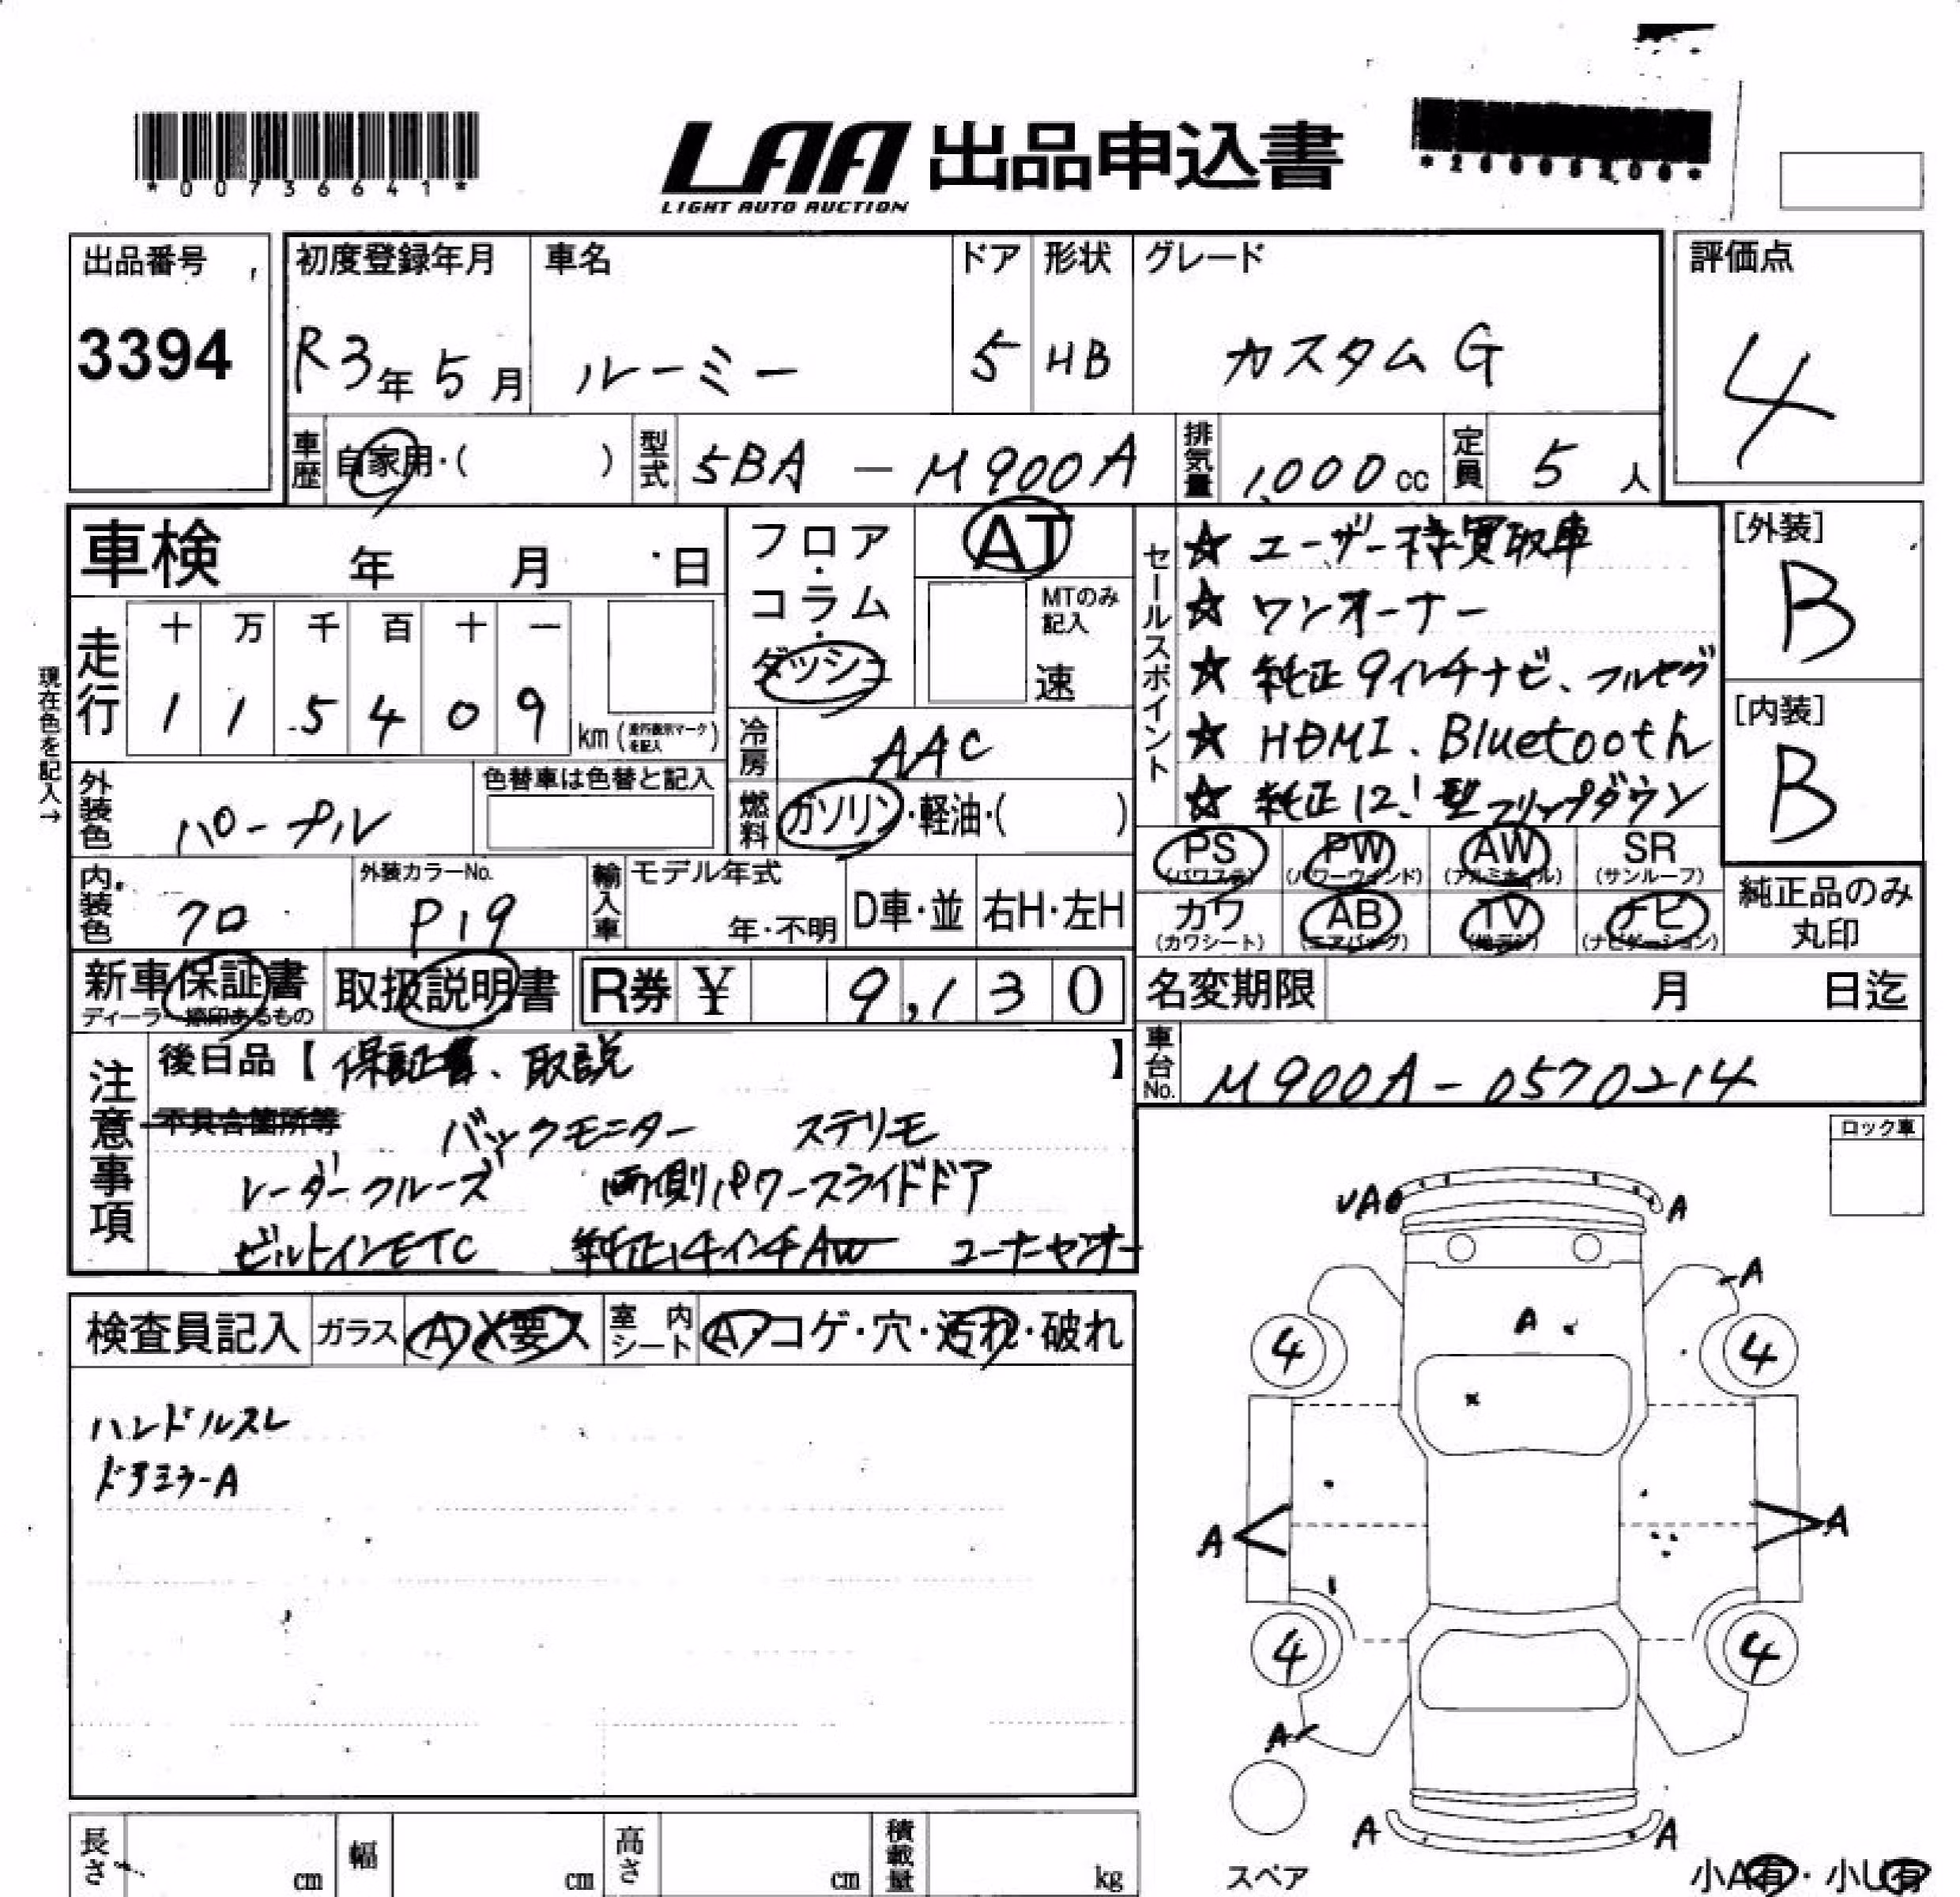 *00736641*
LAA 出品申込書
LIGHT AUTO AUCTION
出品番号
3394
初度登録年月
R3年5月
車名
ルーミー
ドア
5
形状
HB
グレード
カスタムG
評価点
4
車歴
自家用・( )
型式
5BA - M900A
排気量
1,000cc
定員
5人
車検 年 月 日
フロア・コラム・ダッシュ
AT
MTのみ記入
速
セールスポイント
☆ ユーザー様買取車
☆ ワンオーナー
☆ 純正9インチナビ、フルセグ
☆ HDMI、Bluetooth
☆ 純正12.1型フリップダウン
[外装]
B
[内装]
B
走行
十 万 千 百 十 一
1 1 5 4 0 9
km
現在色を記入→
冷房
AAC
燃料
ガソリン・軽油・( )
外装色
パープル
色替車は色替と記入
PS (パワステ)
PW (パワーウィンド)
AW (アルミホイル)
SR (サンルーフ)
カワ (カワシート)
AB (エアバッグ)
TV
ナビ (ナビゲーション)
純正品のみ
丸印
内装色
クロ
外装カラーNo.
P19
輸入車
モデル年式
年・不明
D車・並
右H・左H
新車保証書
ディーラー捺印あるもの
取扱説明書
R券 ¥ 9,130
名変期限 月 日迄
車台No.
M900A-0570214
注意事項
後日品【保証書、取説】
不具合箇所等
バックモニター ステリモ
レーダークルーズ 両側パワースライドドア
ビルトインETC 純正14インチAW コーナーセンサー
ロック車
検査員記入
ガラス
A X要ス
室内シート
A・コゲ・穴・汚れ・破れ
ハンドルスレ
ドアミラーA
UA
A
A
A
4
4
A
A
4
4
A
A
A
スペア
小A有・小U有
長さ cm
幅 cm
高さ cm
積載量 kg